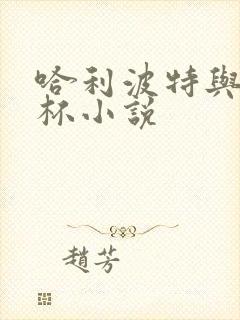 哈利波特與
杯小説
趙芳